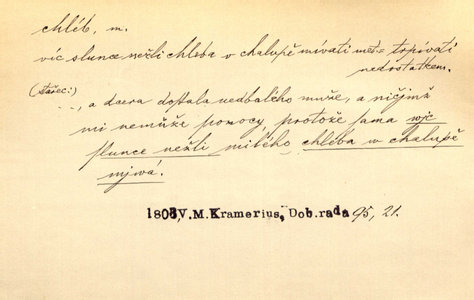 chléb, m.
víc slunce nežli chleba v chalupě mívati met = trpívati
nedostatkem.
(stařec:)
..., a dcera dostala nedbalého muže, a ničjmž
mi nemůže pomocy, protože sama wjc
slunce nežli milého chléba w chalupě
mjwá.
1808, V.M.Kramerius, Dob.rada 95, 21.